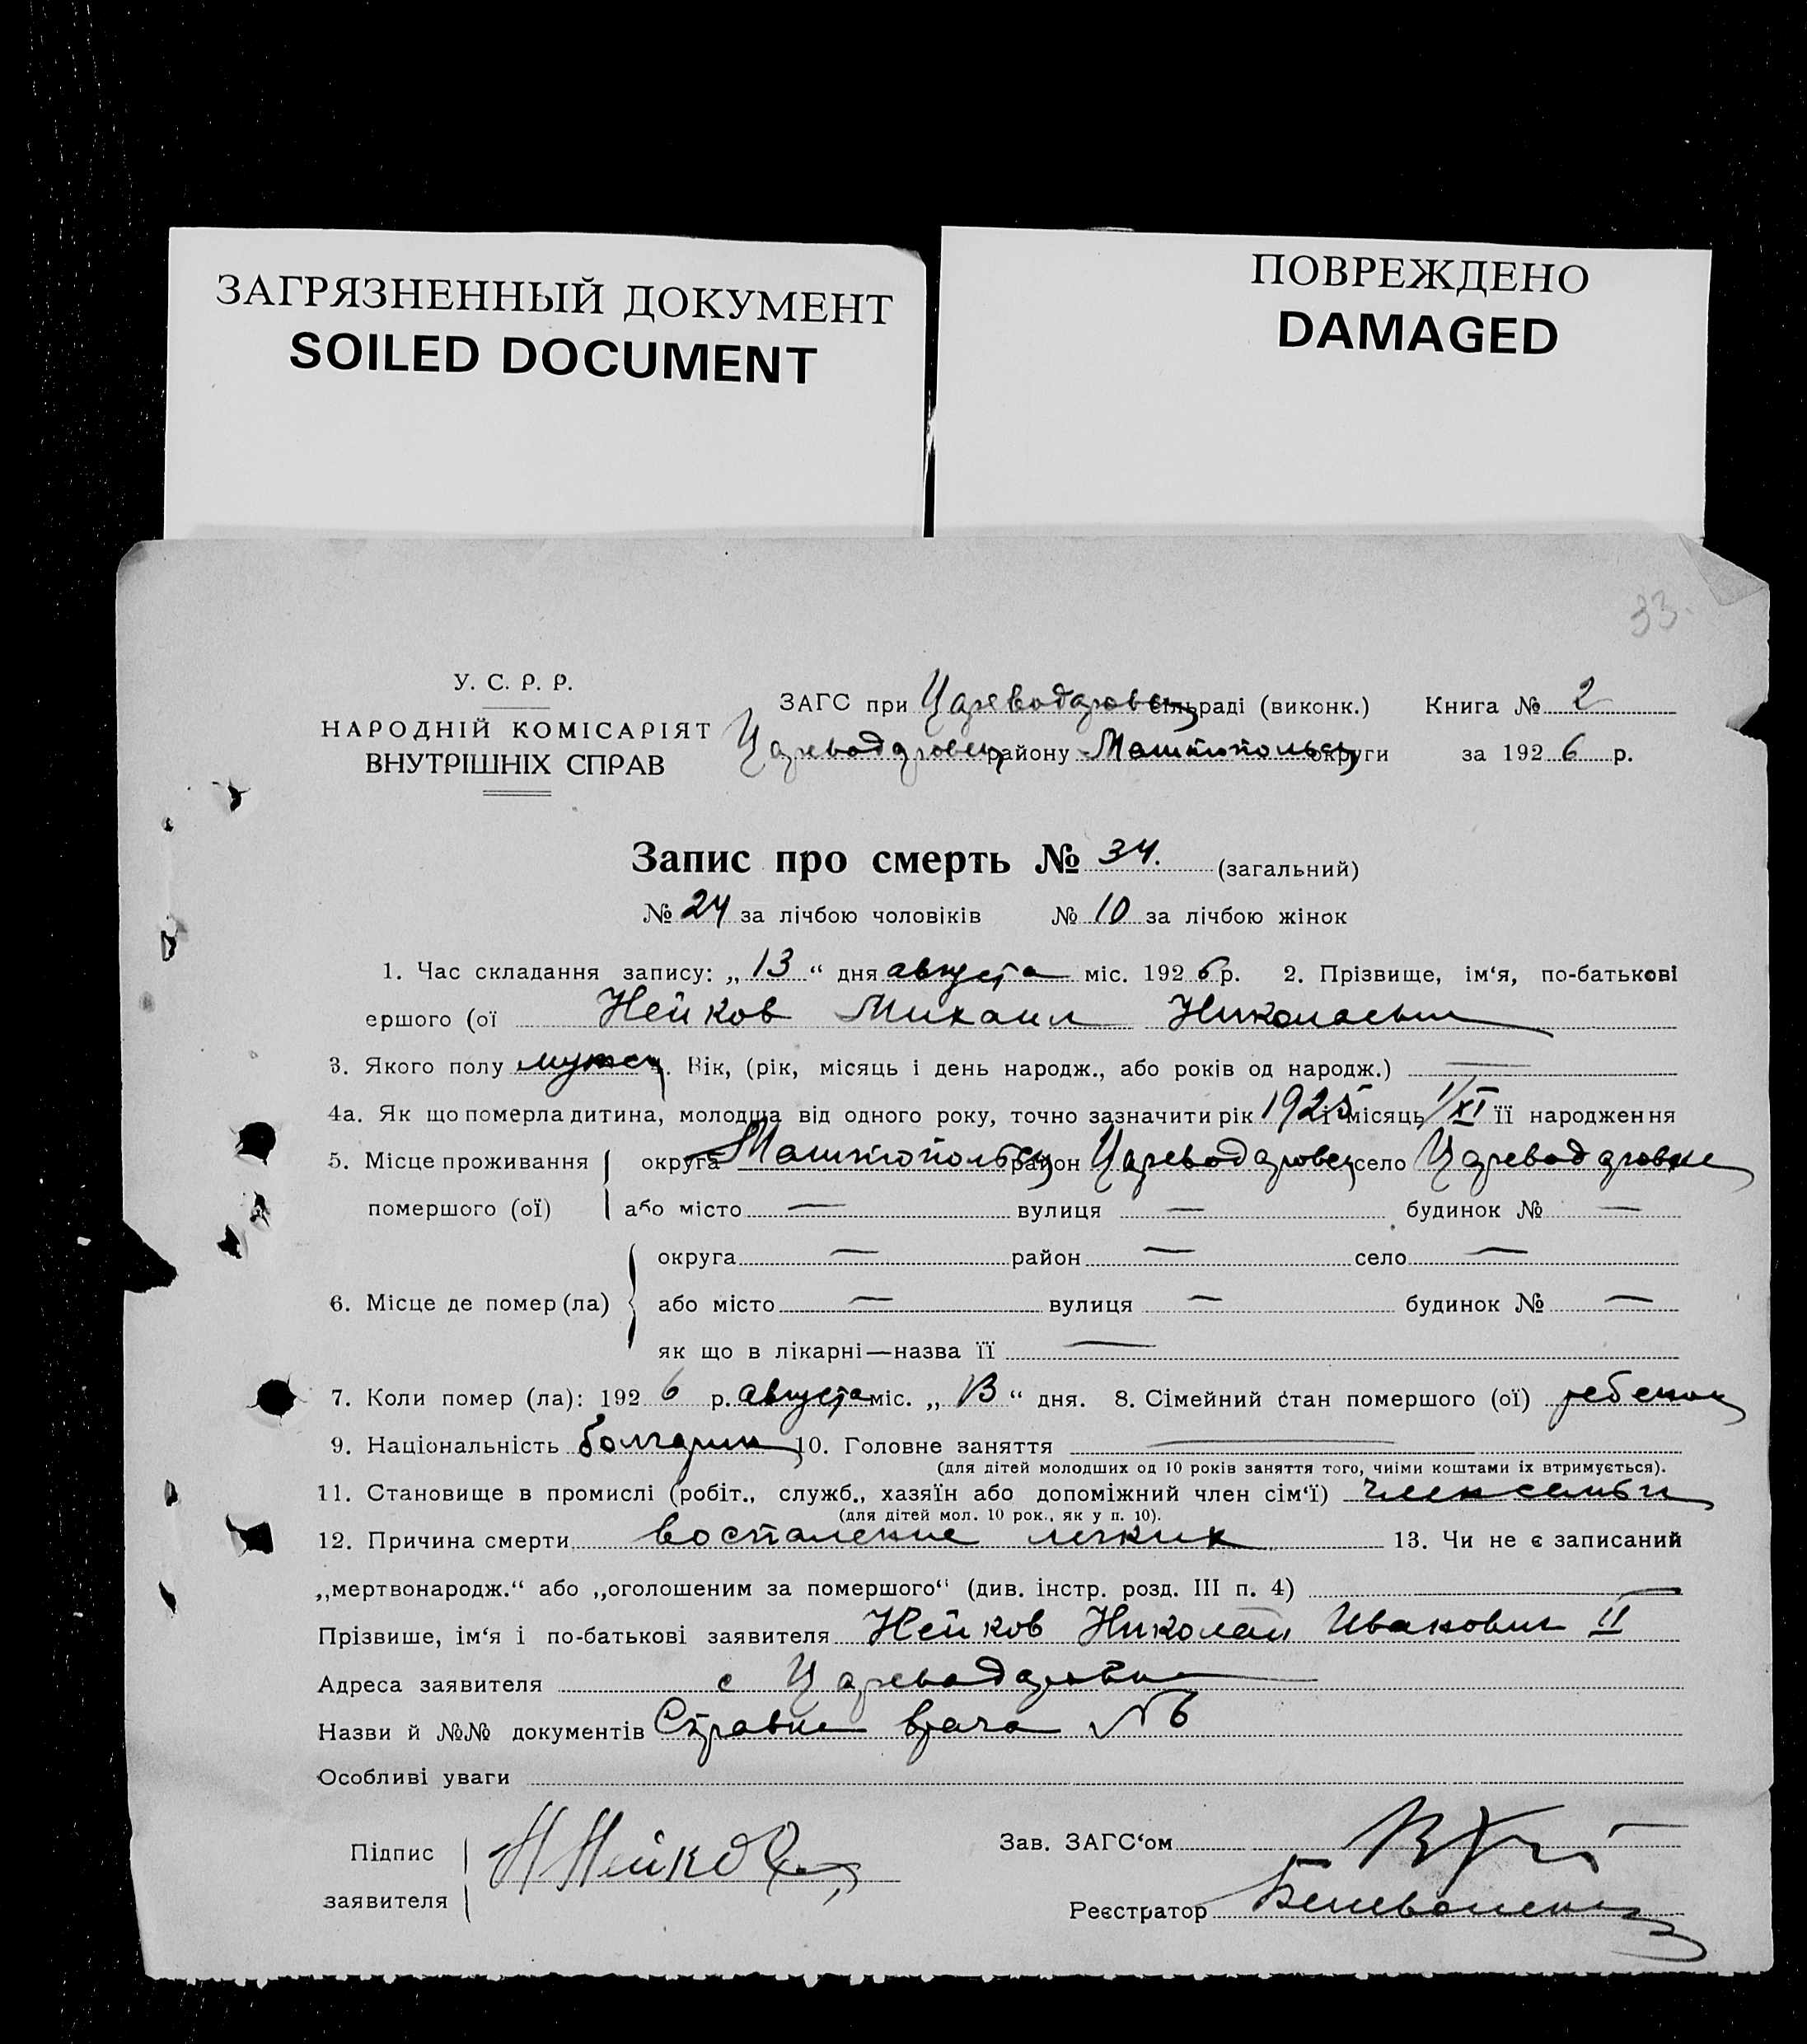 ЗАГРЯЗНЕННЫЙ ДОКУМЕНТ
SOILED DOCUMENT
ПОВРЕЖДЕНО
DAMAGED
33.
У. С. Р. Р.
НАРОДНІЙ КОМІСАРІЯТ
ВНУТРІШНІХ СПРАВ
ЗАГС при Цареводаровск сільраді (виконк.) Книга № 2
Цареводаровск району округи за 1926 р.
Запис про смерть № 34. (загальний)
№ 24 за лічбою чоловіків № 10 за лічбою жінок
1. Час складання запису: „ 13 “ дня августа міс. 1926 р. 2. Прізвище, ім‘я, по-батькові
ершого (ої Нейков Михаил Николаевич
3. Якого полу мужск. Вік, (рік, місяць і день народж., або років од народж.) —
4а. Як що померла дитина, молодша від одного року, точно зазначити рік 1925 і місяць 1/XI її народження
5. Місце проживання округа район Цареводаровск село Цареводаровке
помершого (ої) або місто — вулиця — будинок № —
округа — район — село —
6. Місце де помер (ла) або місто — вулиця — будинок № —
як що в лікарні—назва її —
7. Коли помер (ла): 1926 р. августа міс. „ 13 “ дня. 8. Сімейний стан помершого (ої) ребенок
9. Національність болгарин 10. Головне заняття —
(для дітей молодших од 10 років заняття того, чиїми коштами їх втримується).
11. Становище в промислі (робіт., служб., хазяїн або допоміжний член сім‘ї) член семьи
(для дітей мол. 10 рок., як у п. 10).
12. Причина смерти воспаление легких 13. Чи не є записаний
„мертвонародж.“ або „оголошеним за помершого“ (див. інстр. розд. III п. 4) —
Прізвише, ім‘я і по-батькові заявителя Нейков Николай Иванович II
Адреса заявителя с Цареводаровка
Назви й №№ документів Справка врача № 6
Особливі уваги
Підпис
заявителя
Н Нейков
Зав. ЗАГС‘ом
Реєстратор